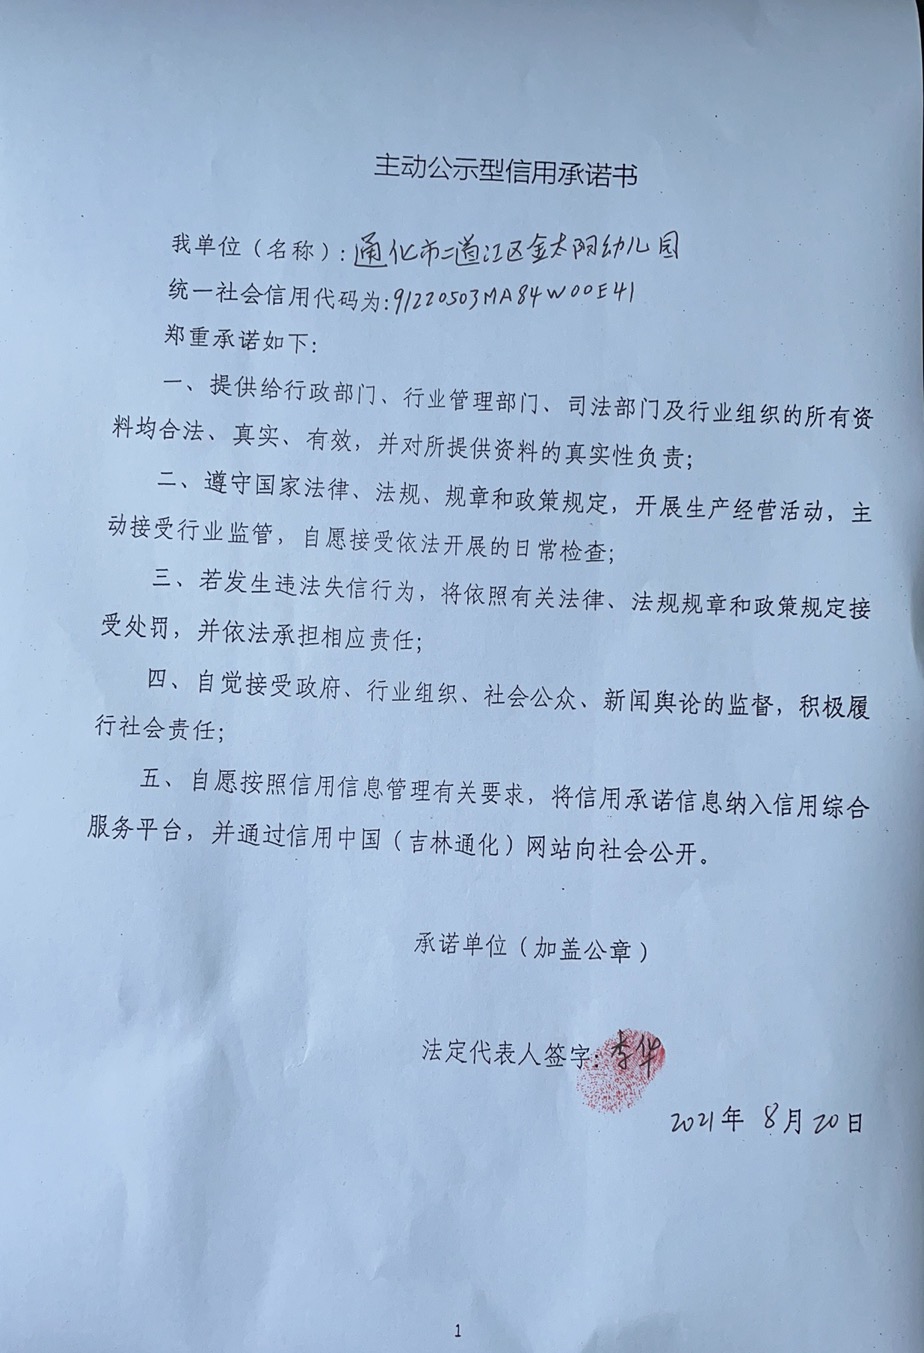 主动公示型信用承诺书
我单位（名称）：通化市二道江区金太阳幼儿园
统一社会信用代码为：91220503MA84W00E41
郑重承诺如下：
一、提供给行政部门、行业管理部门、司法部门及行业组织的所有资
料均合法、真实、有效，并对所提供资料的真实性负责；
二、遵守国家法律、法规、规章和政策规定，开展生产经营活动，主
动接受行业监管，自愿接受依法开展的日常检查；
三、若发生违法失信行为，将依照有关法律、法规规章和政策规定接
受处罚，并依法承担相应责任；
四、自觉接受政府、行业组织、社会公众、新闻舆论的监督，积极履
行社会责任；
五、自愿按照信用信息管理有关要求，将信用承诺信息纳入信用综合
服务平台，并通过信用中国（吉林通化）网站向社会公开。
承诺单位（加盖公章）
法定代表人签字：李华
2021年 8月20日
1